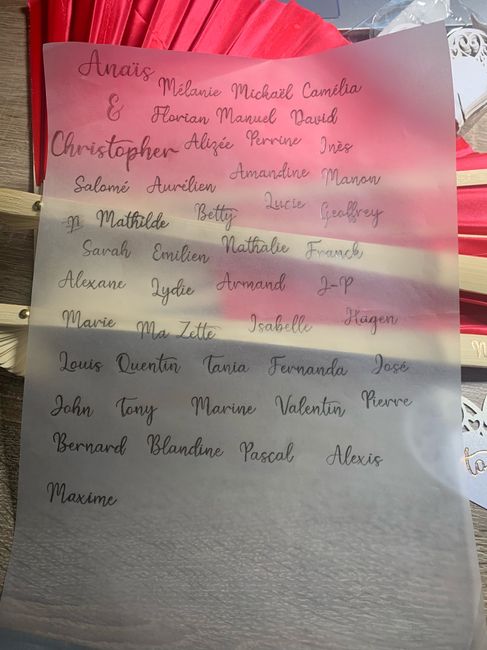 Anaïs Mélanie Mickaël Camélia
& Florian Manuel David
Christopher Alizée Perrine Inès
Salomé Aurélien Amandine Manon
Mathilde Betty Lucie Geoffrey
Sarah Emilien Nathalie Franck
Alexane Lydie Armand J-P
Marie Ma Zette Isabelle Hagen
Louis Quentin Tania Fernanda José
John Tony Marine Valentin Pierre
Bernard Blandine Pascal Alexis
Maxime
to